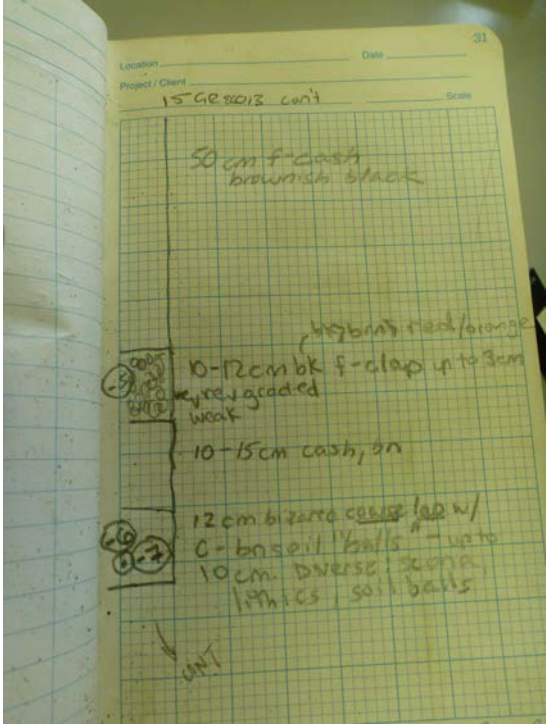 31
Location Date
Project / Client
15 cont Scale
50 cm f-cash
brownish black
red/orange
-5
10-12cm bk f-clap up to 3cm
rev graded
weak
10-15cm cash, bn
12 cm bizarre coarse lap w/
-6
C-bn soil "balls" - up to
-7
10 cm. Diverse: scoria,
lithics, soil balls
UNT